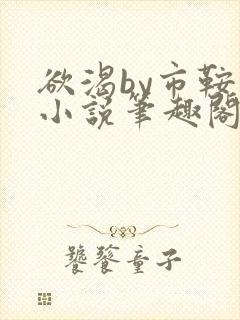 欲渴by市鞍
小说笔趣阁
饕餮童子